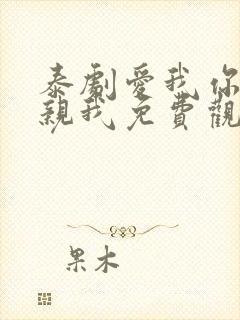 泰劇愛我你
親我免費觀
果木